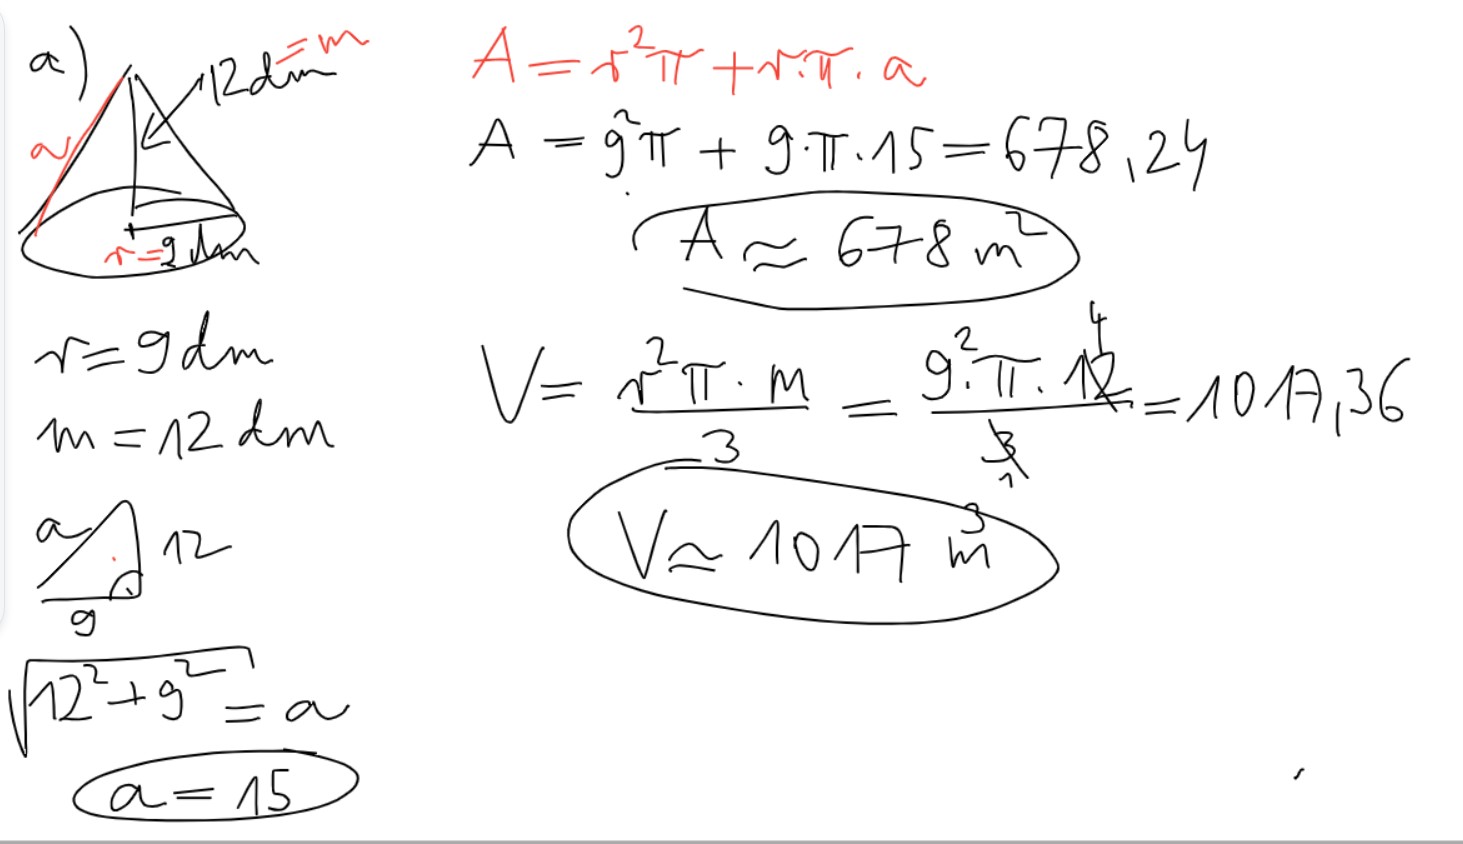 a)
12dm = m
a
r = 9 dm
r = 9 dm
m = 12 dm
a
12
9
√12² + 9² = a
a = 15
A = r²π + r·π·a
A = 9²π + 9·π·15 = 678,24
A ≈ 678 m²
V = r²π·m / 3 = 9²·π·12 4 / 3 1 = 1017,36
V ≈ 1017 m³